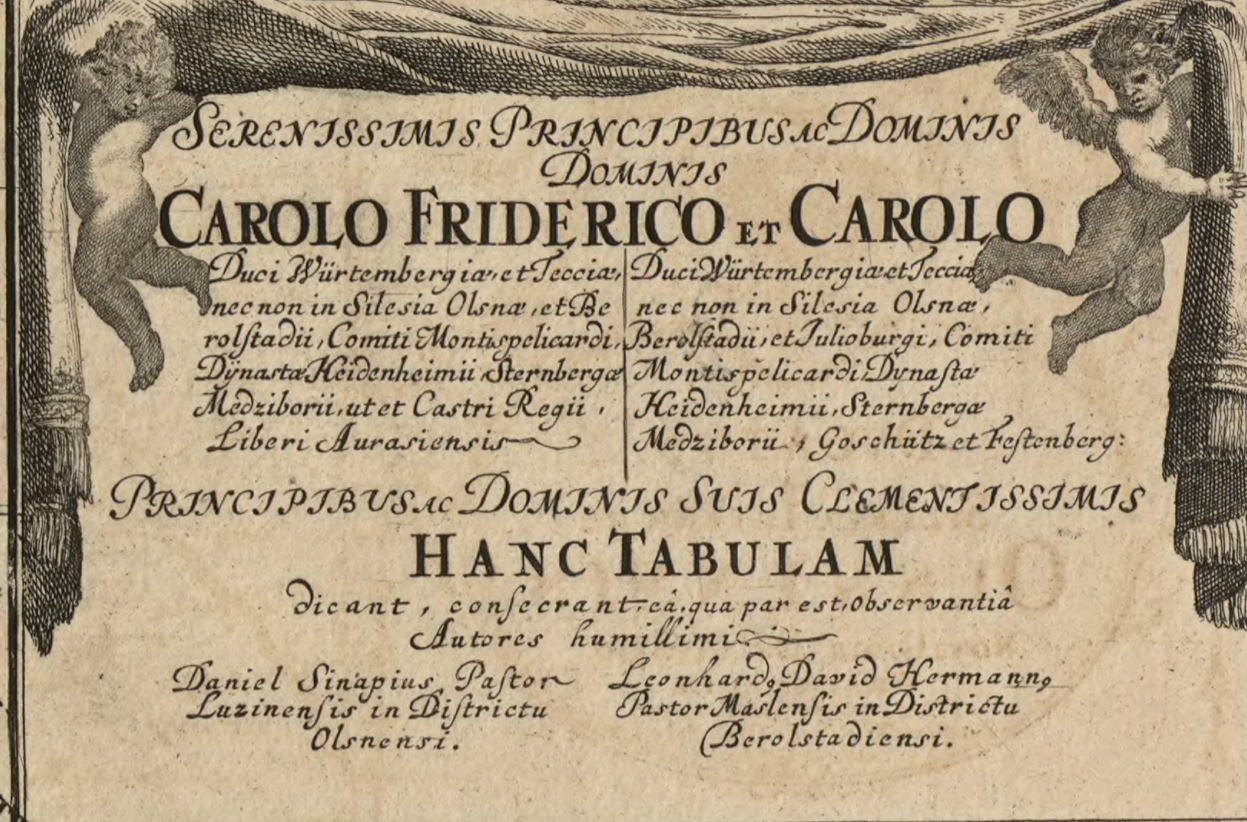 SERENISSIMIS PRINCIPIBUS AC DOMINIS
DOMINIS
CAROLO FRIDERICO ET CAROLO
Duci Würtembergiæ, et Tecciæ,
nec non in Silesia Olsnæ, et Be
rolstadii, Comiti Montispelicardi,
Dÿnastæ Heidenheimii Sternbergæ
Medziborii, ut et Castri Regii,
Liberi Aurasiensis
Duci Würtembergiæ et Tecciæ,
nec non in Silesia Olsnæ,
Berolstadii, et Julioburgi, Comiti
Montispelicardi, Dynastæ
Heidenheimii, Sternbergæ
Medziborii, Goschütz et Festenberg:
PRINCIPIBUS AC DOMINIS SUIS CLEMENTISSIMIS
HANC TABULAM
dicant, consecrant eâ, qua par est, observantiâ
Autores humillimi
Daniel Sinapius, Pastor
Luzinensis in Districtu
Olsnensi.
Leonhardꝰ David Hermannꝰ
Pastor Maslensis in Districtu
Berolstadiensi.